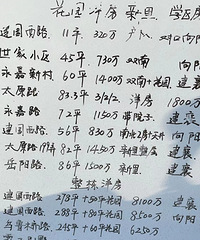 花园 洋房 新里 学区房
建国西路 11平 320万 户口 对口向阳
世家小区 45平 730万 双南 向阳
永嘉新村 60平 1400万 双南+花园 建襄
太原路 83.3平 3/2/2 洋房 1800万
永嘉路 72平 1150万 带院子 建襄
建国西路 56平 830万 南北 向阳
太原路 82平 1450万 新里整层 建襄
岳阳路 86平 1500万 新里 建襄
整栋 洋房
建国西路 218平+50平花园 8100万 建襄
建国西路 288平+80平花园 8500万 向阳
与鲁木齐路 245平+60平花园 6250万